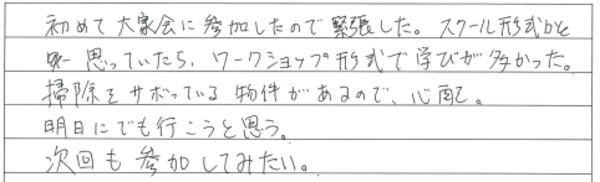 初めて大家会に参加したので緊張した。スクール形式かと
思っていたら、ワークショップ形式で学びが多かった。
掃除をサボっている物件があるので、心配。
明日にでも行こうと思う。
次回も参加してみたい。